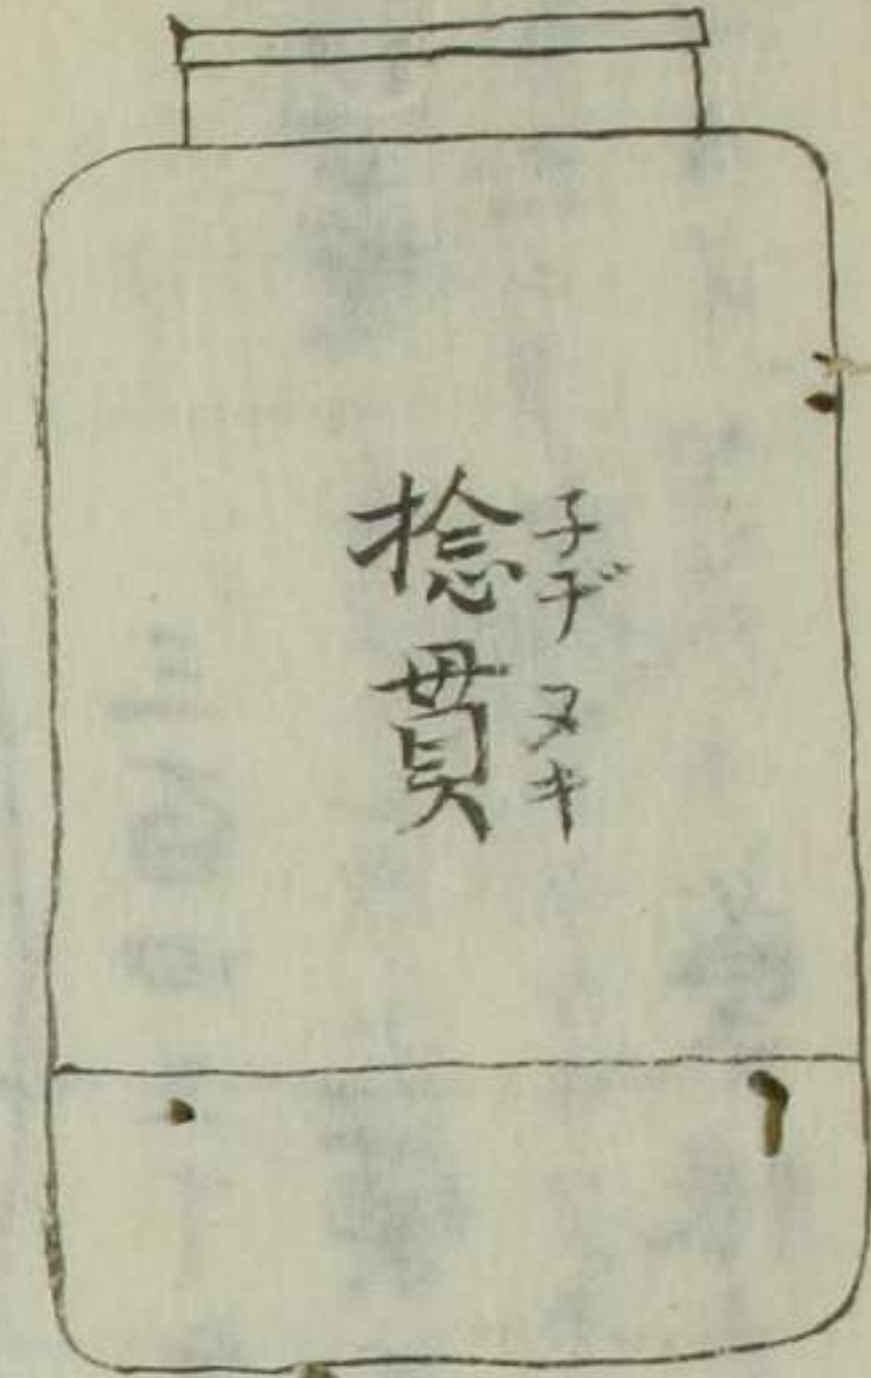 捻貫
子ヂヌキ